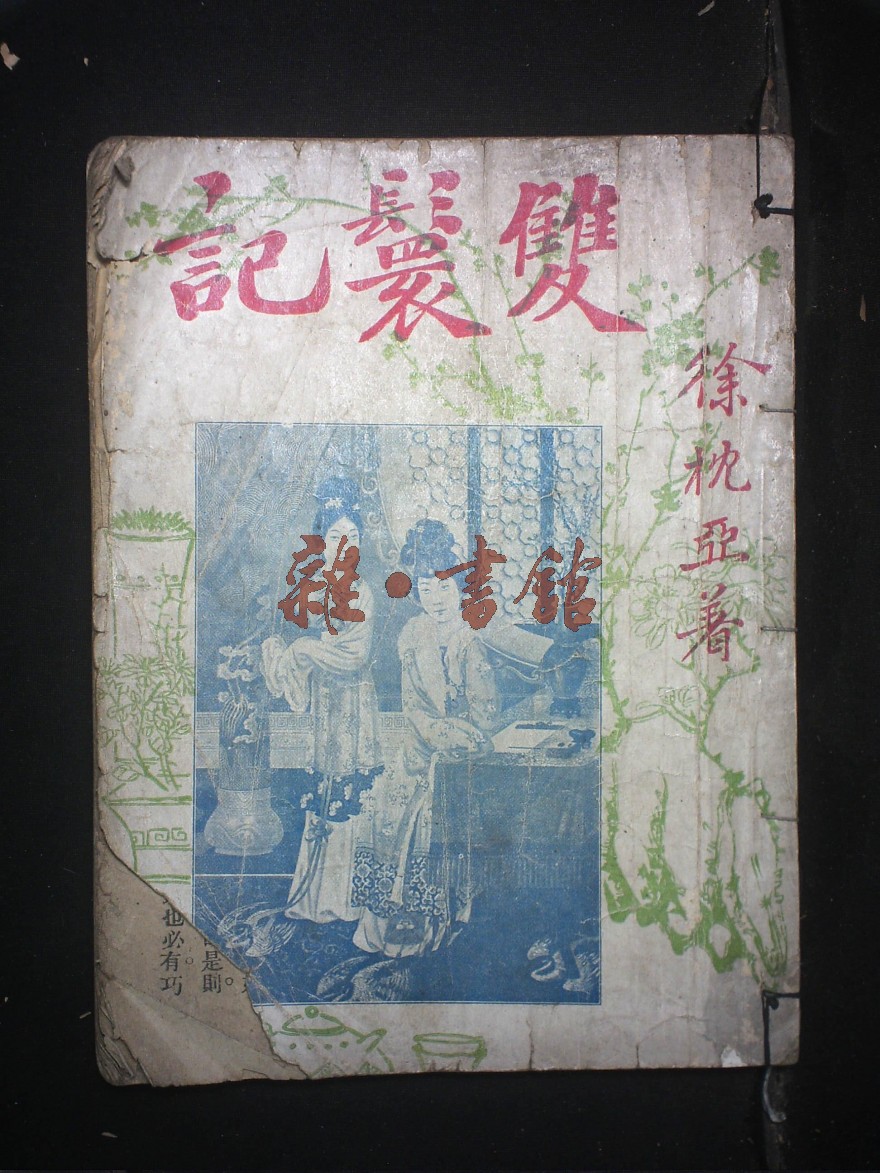 雙鬟記
徐枕亞著
雜·書館
是則。
也必。有巧